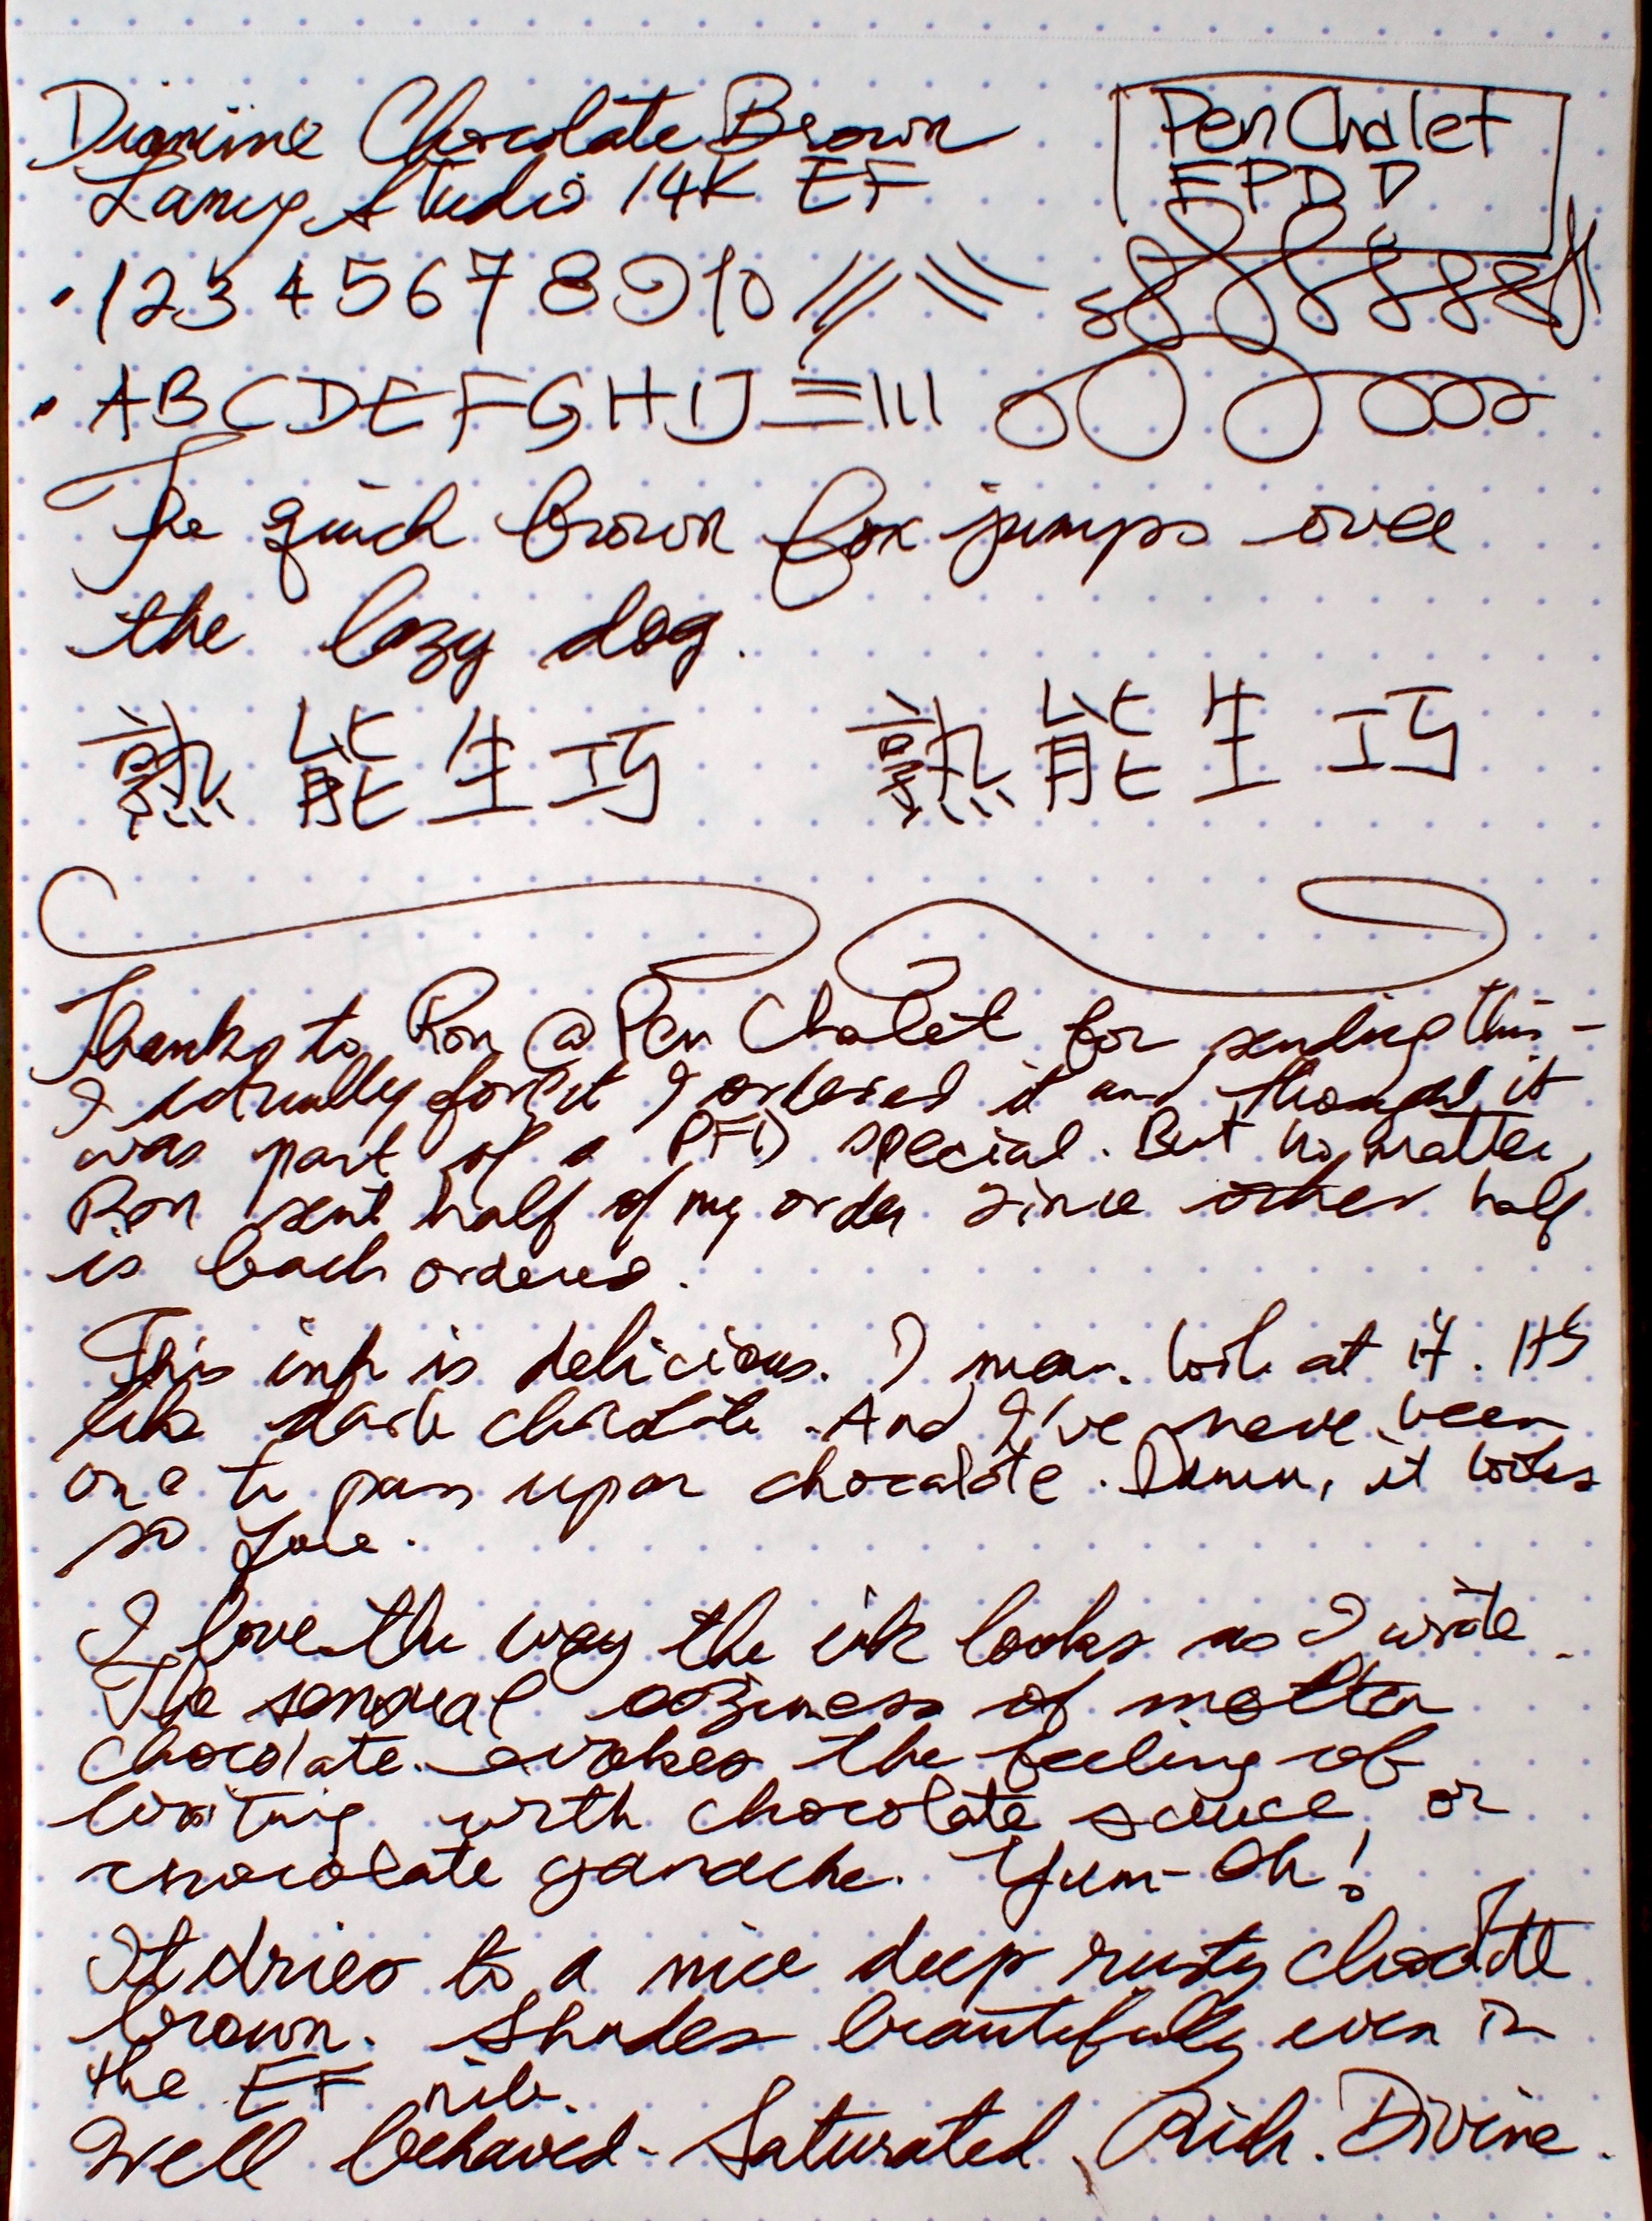 Diamine Chocolate Brown
Lamy Studio 14K EF
Pen Chalet
FPD D
1 2 3 4 5 6 7 8 9 10
A B C D E F G H I J
The quick brown fox jumps over
the lazy dog.
熟能生巧 熟能生巧
Thanks to Ron @ Pen Chalet for sending this -
I actually forgot I ordered it and thought it
was part of a PFD special. But no matter,
Ron sent half of my order since other half
is back ordered.
This ink is delicious. I mean look at it. Its
like dark chocolate. And I've never been
one to pass upon chocolate. Damn, it looks
so
I love the way the ink looks as I write.
The sensual ooziness of molten
chocolate evokes the feeling of
writing with chocolate sauce or
chocolate ganache. Yum-Oh!
It dries to a nice deep rusty chocolate
brown. Shades beautifully even in
the EF nib.
Well behaved - Saturated. Rich. Divine.